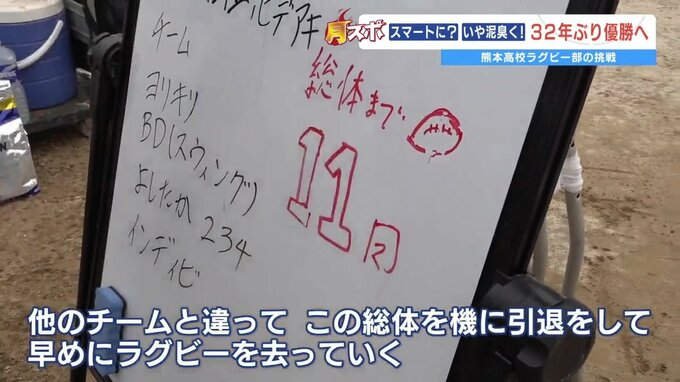 月スポ
スマートに? いや泥臭く! 32年ぶり優勝へ
熊本高校ラグビー部の挑戦
チーム
ヨリキリ
BD(スウィング)
よしたか 234
インディビ
総体まで
11日
他のチームと違って この総体を機に引退をして
早めにラグビーを去っていく